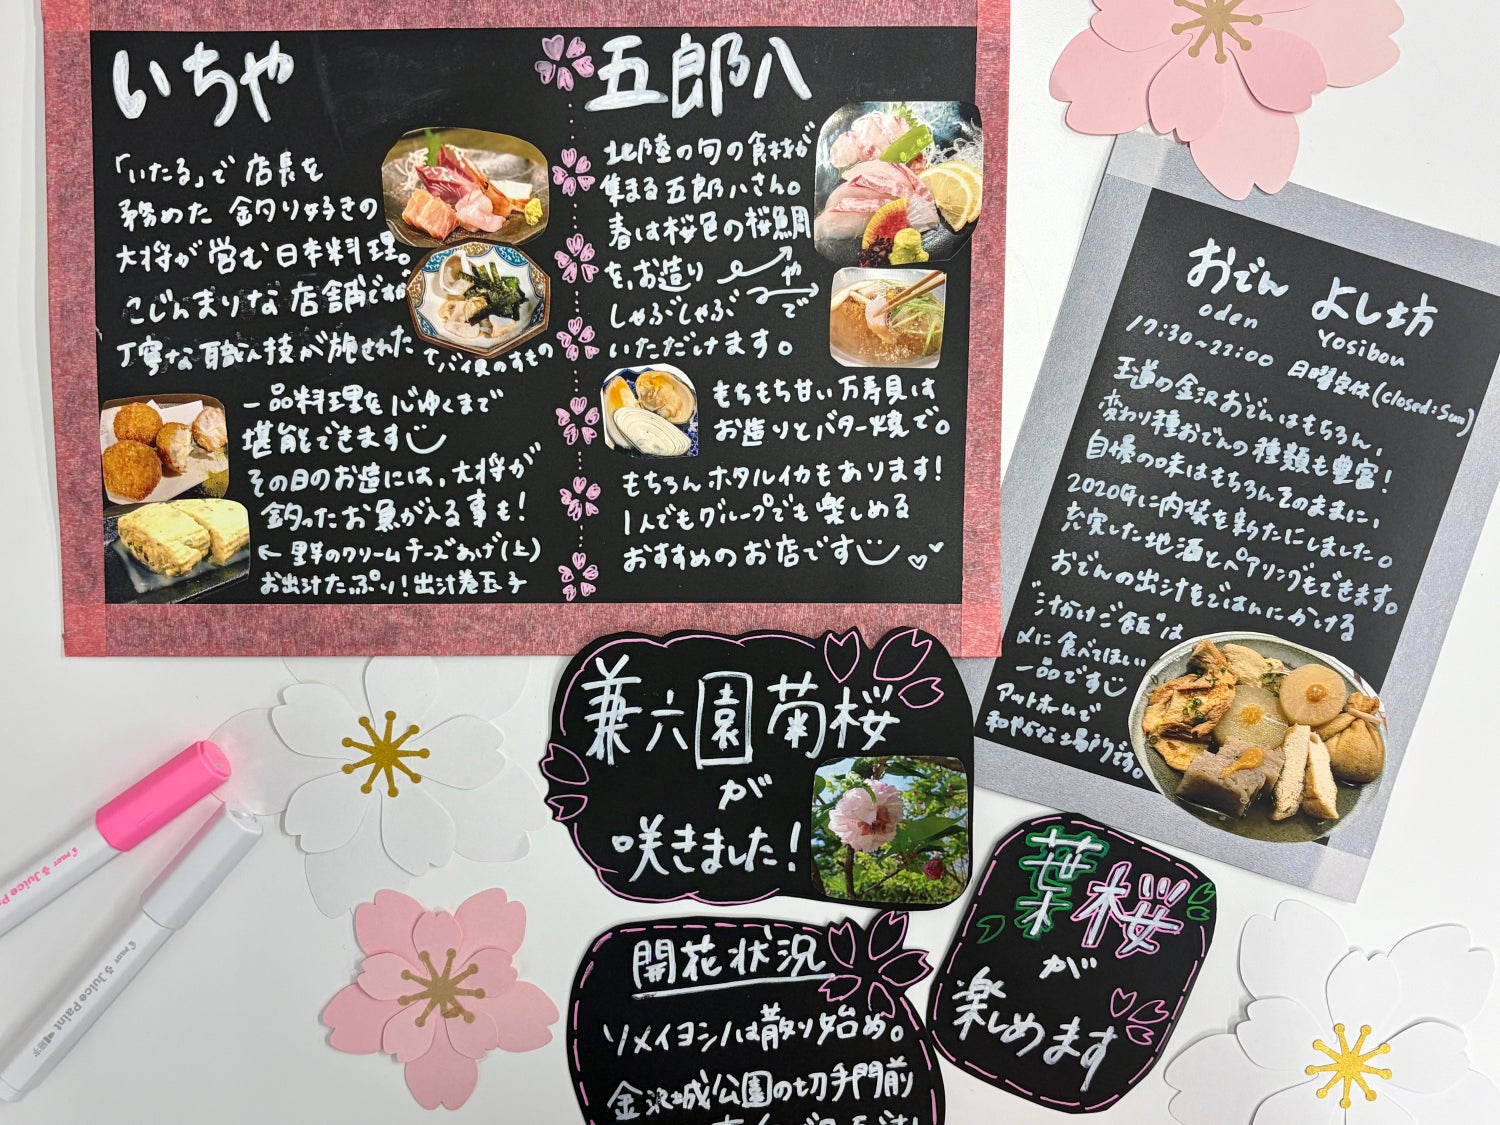 いちや
「いたる」で店長を
務めた釣り好きの
大将が営む日本料理。
こじんまりな店舗ですが
丁寧な職人技が施された
てバイ貝のすもの
一品料理を心ゆくまで
堪能できます
その日のお造には、大将が
釣ったお魚が入る事も!
←里芋のクリームチーズあげ(上)
お出汁たっぷり!出汁巻玉子
五郎八
北陸の旬の食材が
集まる五郎八さん。
春は桜色の桜鯛
を、お造り や
しゃぶしゃぶ で
いただけます。
もちもち甘い万寿貝は
お造りとバター焼で。
もちろんホタルイカもあります!
1人でもグループでも楽しめる
おすすめのお店です
おでん よし坊
oden Yosibou
17:30~22:00 日曜定休(closed:Sun)
王道の金沢おでんはもちろん、
変わり種おでんの種類も豊富!
自慢の味はもちろんそのままに、
2020年に内装を新たにしました。
充実した地酒とペアリングもできます。
おでんの出汁をごはんにかける
"汁かけご飯"は
〆に食べてほしい
一品です
アットホームで
和やかな場所です。
兼六園菊桜
が
咲きました!
葉桜
が
楽しめます
開花状況
ソメイヨシノは散り始め。
金沢城公園の切手門前
PILOT Juice Paint
PILOT Juice Paint